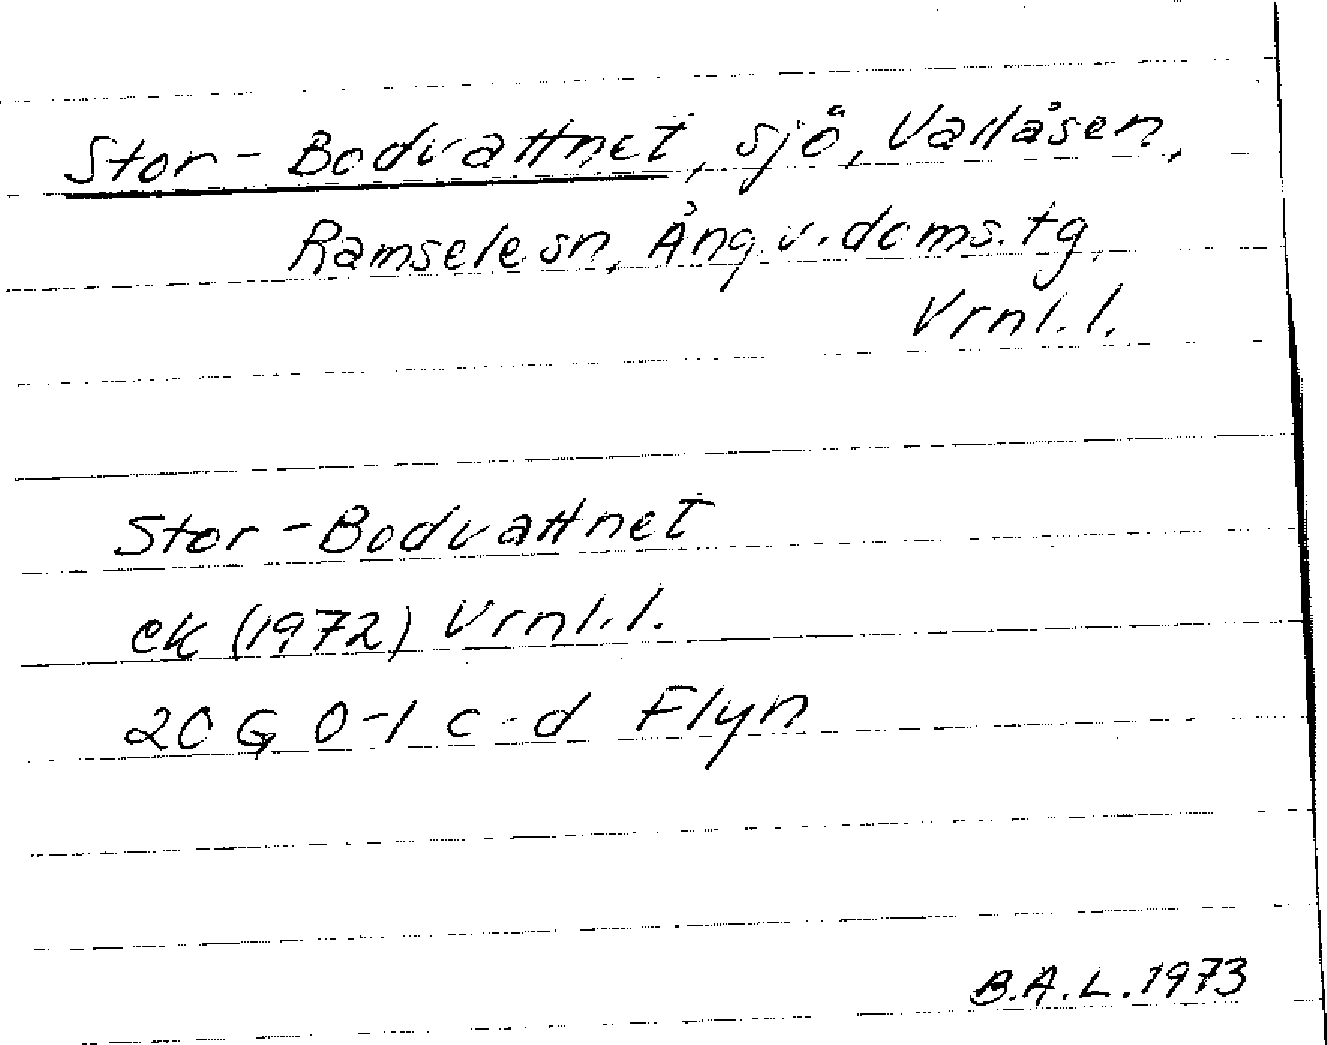 Stor-Bodvattnet, sjö, Vallåsen,
Ramsele sn, Ång. v. doms. tg,
Vrnl. l.
Stor-Bodvattnet
ek (1972) Vrnl. l.
20 G 0-1 c-d Flyn
B.A.L. 1973